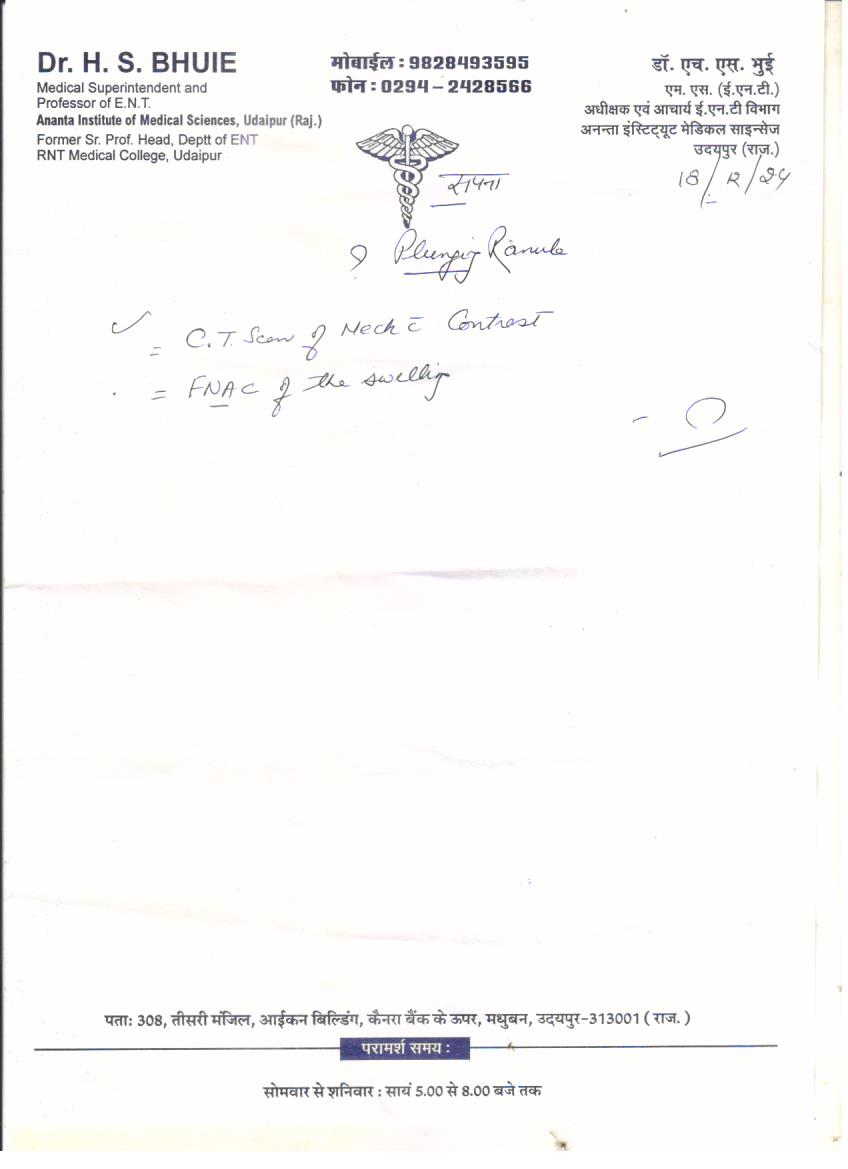 Dr. H. S. BHUIE
Medical Superintendent and
Professor of E.N.T.
Ananta Institute of Medical Sciences, Udaipur (Raj.)
Former Sr. Prof. Head, Deptt of ENT
RNT Medical College, Udaipur
मोबाईल : 9828493595
फोन : 0294 – 2428566
डॉ. एच. एस. भुई
एम. एस. (ई.एन.टी.)
अधीक्षक एवं आचार्य ई.एन.टी विभाग
अनन्ता इंस्टिट्यूट मेडिकल साइन्सेज
उदयपुर (राज.)
18/12/24
सपना
? Plunging Ranula
= C.T. Scan of Neck c̄ Contrast
= FNAC of the swelling
पताः 308, तीसरी मंजिल, आईकन बिल्डिंग, कैनरा बैंक के ऊपर, मधुबन, उदयपुर-313001 ( राज. )
परामर्श समय :
सोमवार से शनिवार : सायं 5.00 से 8.00 बजे तक